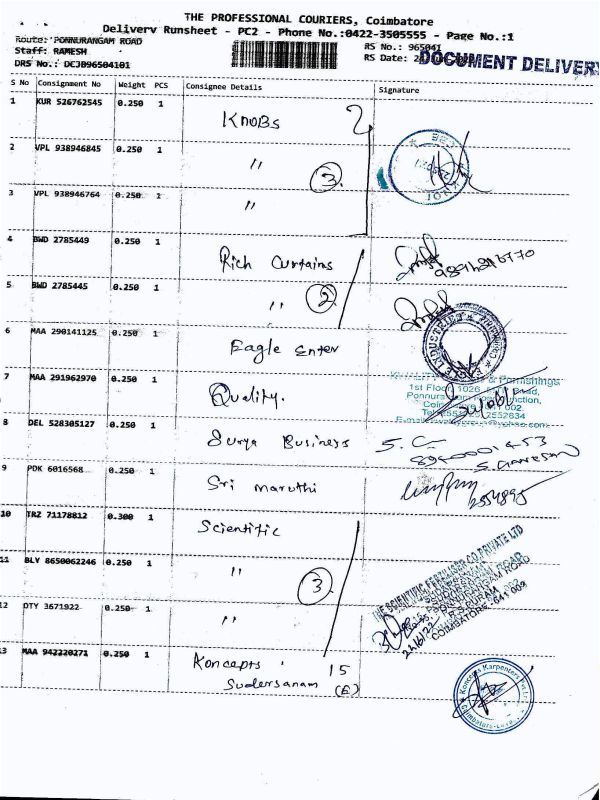 THE PROFESSIONAL COURIERS, Coimbatore
Delivery Runsheet - PC2 - Phone No.:0422-3505555 - Page No.:1
Route: PONNURANGAM ROAD
Staff: RAMESH
DRS No.: DCJB96504101
RS No.: 965041
RS Date:
DOCUMENT DELIVERY
S No Consignment No Weight PCS Consignee Details Signature
1 KUR 526762545 0.250 1 KNOBS
2 VPL 938946845 0.250 1 " 3
3 VPL 938946764 0.250 1 "
4 BWD 2785449 0.250 1 Rich Curtains
5 BWD 2785445 0.250 1 " 2
6 MAA 290141125 0.250 1 Eagle Enter
7 MAA 291962970 0.250 1 Quality.
& Furnishings
1st Floor, Road,
8 DEL 528305127 0.250 1 Surya Business
9 PDK 6016568 0.250 1 Sri maruthi
10 TRZ 71178812 0.300 1 Scientific
11 BLY 8650062246 0.250 1 " 3
12 DTY 3671922 0.250 1 "
R.S.PURAM
COIMBATORE - 641 002
13 MAA 942220271 0.250 1 Koncepts 15
Sudersanam (E)
Koncepts Karpenters